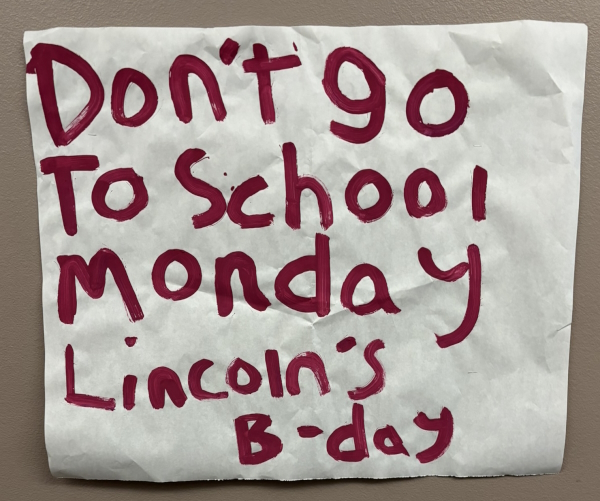 Don't go
To School
monday
Lincoln's
B-day